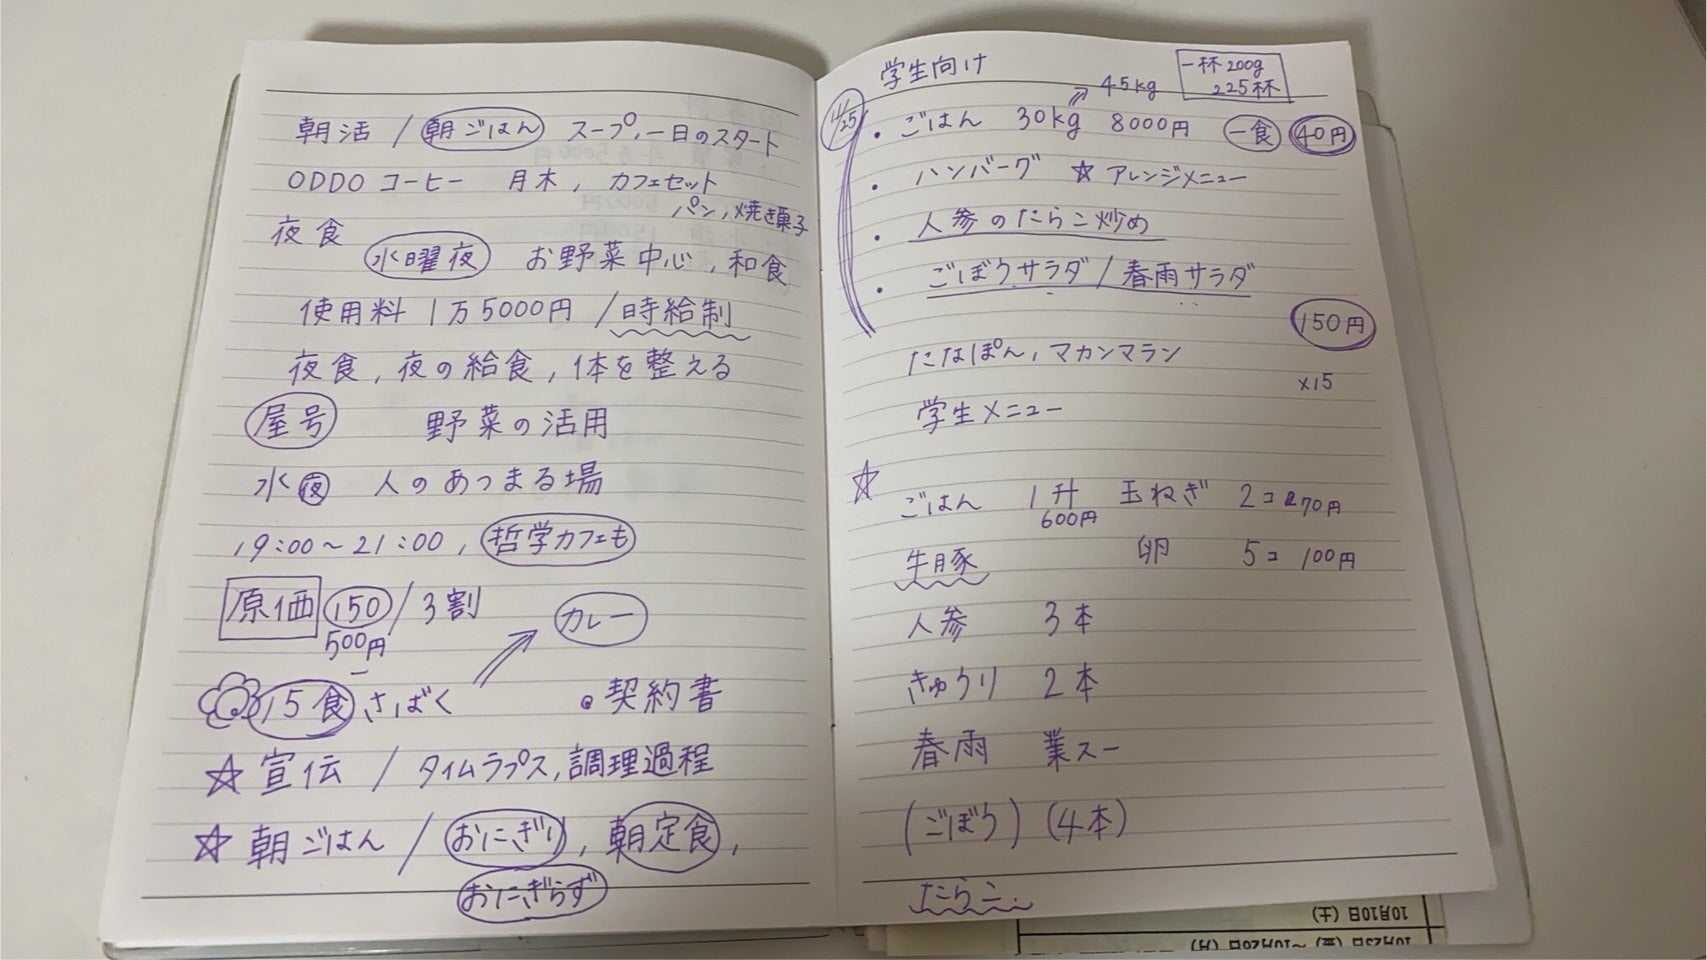 朝活 / 朝ごはん スープ、一日のスタート
ODDO コーヒー 月木, カフェセット
パン,焼き菓子
夜食
水曜夜 お野菜中心,和食
使用料 1万5000円 /時給制
夜食,夜の給食,体を整える
屋号 野菜の活用
水夜 人のあつまる場
19:00～21:00,哲学カフェも
原価 150/3割
500円
カレー
15食さばく
・契約書
☆宣伝 / タイムラプス,調理過程
☆朝ごはん / おにぎり,朝定食,
おにぎらず
学生向け
45kg
一杯200g
225杯
11/25
・ごはん 30kg 8000円 一食 40円
・ハンバーグ ☆アレンジメニュー
・人参のたらこ炒め
・ごぼうサラダ/春雨サラダ
150円
×15
たなぽん,マカンマラン
学生メニュー
☆
ごはん 1升 玉ねぎ 2コ 70円
600円
牛豚 卵 5コ 100円
人参 3本
きゅうり 2本
春雨 業スー
(ごぼう) (4本)
たらこ
10月10日(土)
10月23日(金)～10月26日(月)